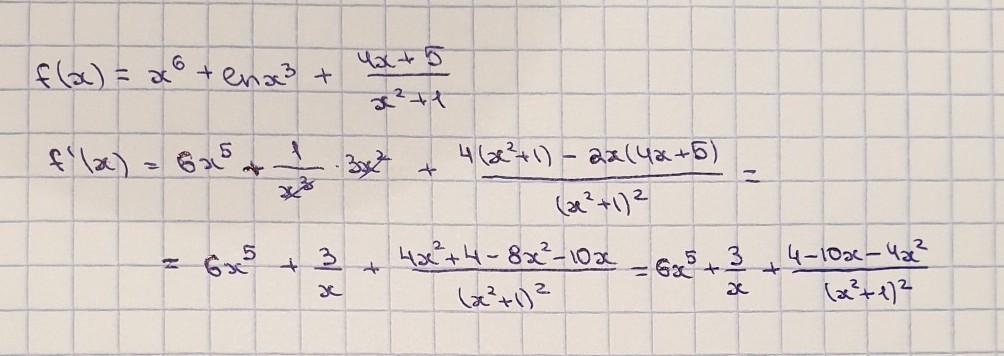 f(x) = x⁶ + lnx³ + (4x+5)/(x²+1)
f'(x) = 6x⁵ + 1/x³ · 3x² + (4(x²+1) - 2x(4x+5))/(x²+1)² =
= 6x⁵ + 3/x + (4x²+4-8x²-10x)/(x²+1)² = 6x⁵ + 3/x + (4-10x-4x²)/(x²+1)²